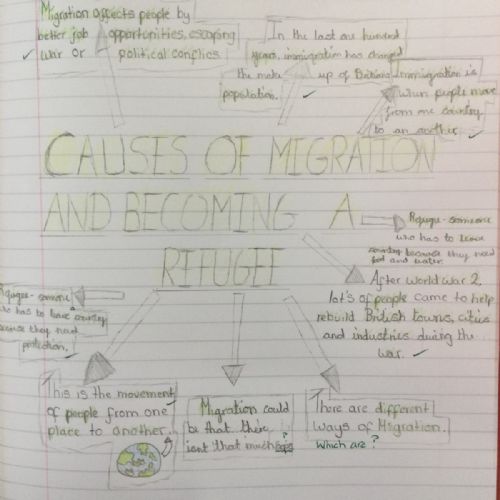 Migration affects people by
better job opportunities, escaping
war or political conflics
In the last one hundred
years, immigration has changed
the make up of Britians
population.
Immigration is
when people move
from one country
to an another.
CAUSES OF MIGRATION
AND BECOMING A
REFUGEE
Refugee - someone
who has to leave
country because they need
food and water.
After world war 2,
lot's of people came to help
rebuild British towns, cities
and industries during the
war.
Refugee - someone
who has to leave a country
because they need
protection.
This is the movement
of people from one
place to another.
Migration could
be that there
isnt that much
?
There are different
ways of Migration.
Which are?